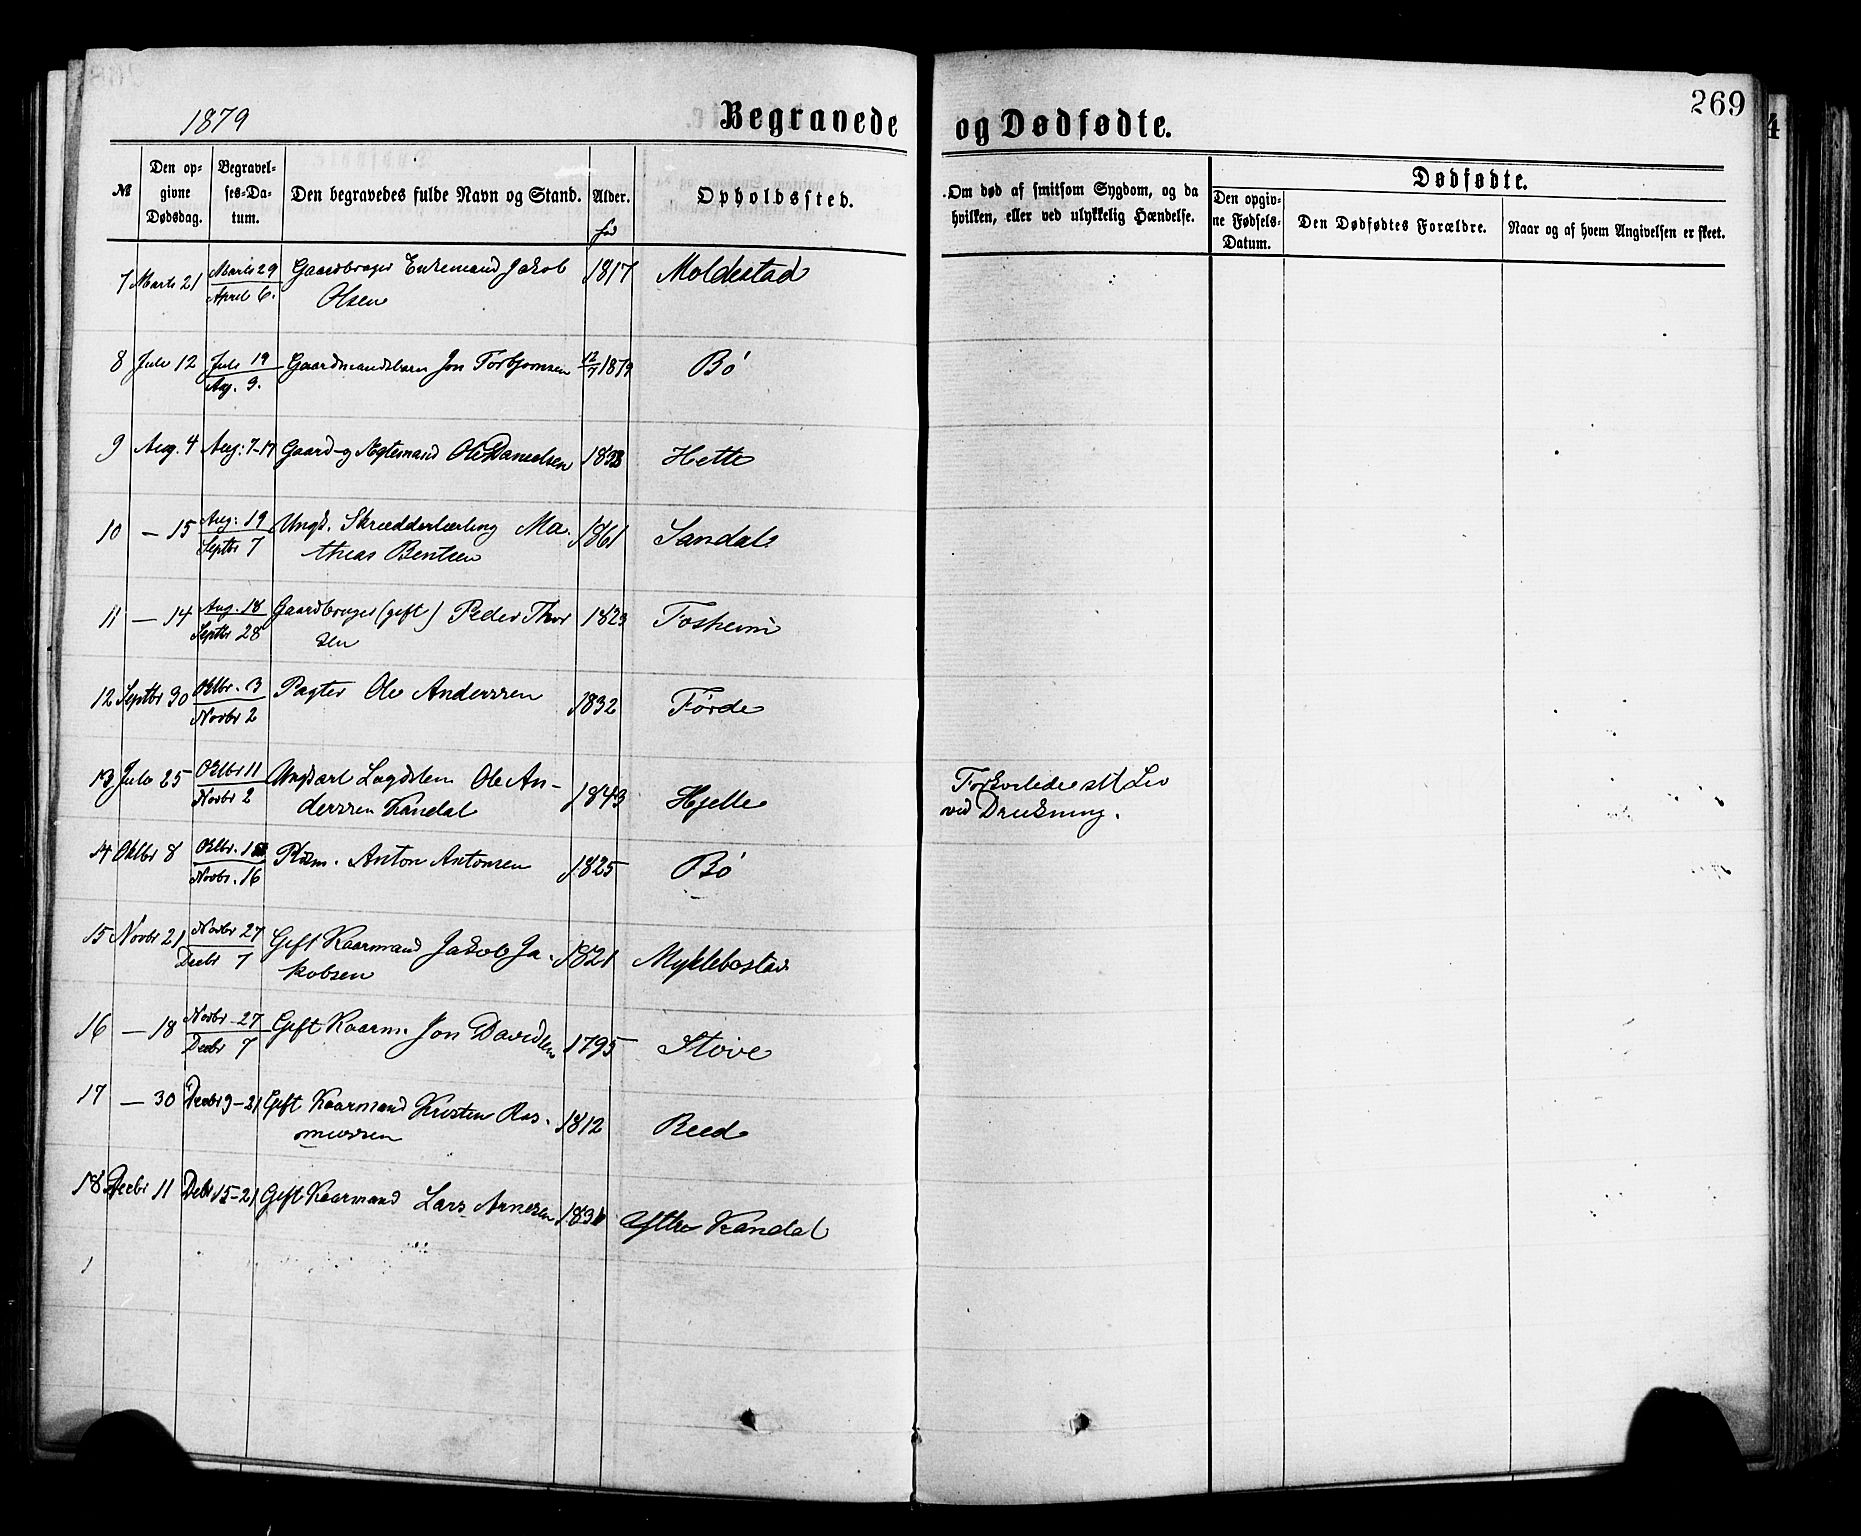 269
1879
Begravede og Dødfødte.
№
Den opgivne Dødsdag.
Begravelses-Datum.
Den begravedes fulde Navn og Stand.
Alder.
Opholdssted.
Om død af smitsom Sygdom, og da hvilken, eller ved ulykkelig Hændelse.
Dødfødte.
Den opgivne Fødsels-Datum.
Den Dødfødtes Forældre.
Naar og af hvem Angivelsen er skeet.
7 Marts 21 Marts 29 / April 6. Gaardbruger Enkemand Jakob 1817 Moldestad
Olsen
8 Juli 12 Juli 19 / Aug. 9. Gaardmandsbarn Jon Torbjørnsen 12/7 1879 Bø
9 Aug. 4 Aug: 7-17 Gaard- og Ægtemand Ole Danielsen Hette
10 — 15 Aug: 19 / Septbr 7 Ungk. Skrædderlærling Ma- 1861 Sandal
thias Bentsen
11 — 14 Aug. 18 / Septbr 28 Gaardbruger (gift) Peder Thor 1823 Tosheim
sen
12 Septbr 30 Oktbr. 3 / Novbr 2 Pagter Ole Anderssen 1832 Førde
13 Juli 25 Oktbr 11 / Novbr 2 Ungkarl Lægdslem Ole An- 1843 Hjelle Forkortede sit Liv
derssen Kandal ved Drukning.
14 Oktbr 8 Oktbr. / Novbr. 16 Anton Antonsen 1825 Bø
15 Novbr 21 Novbr 27 / Decbr 7 Gift Kaarmand Jakob Ja- 1821 Myklebostad
kobsen
16 — 18 Novbr 27 / Decbr 7 Gift Kaarm. Jon Davidsen 1795 Støve
17 — 30 Decbr 9-21 Gift Kaarmand Kristen Ras- 1812 Reed
mussen
18 Decbr 11 Debr 15-21 Gift Kaarmand Lars Arnesen Yttre Kandal